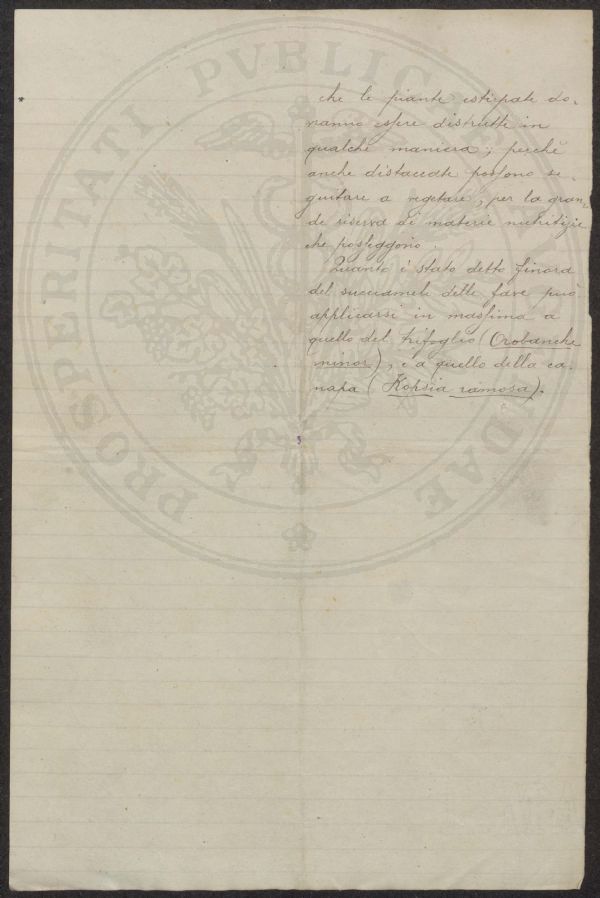 PROSPERITATI PVBLICAE AVGENDAE
che le piante estirpate do-
vranno essere distrutte in
qualche maniera; perchè
anche distaccate possono se-
guitare a vegetare, per la gran-
de riserva di materie nutritizie
che posseggono.
Quanto è stato detto finora
del succiamele delle fave può
applicarsi in massima a
quello del trifoglio (Orobanche
minor), e a quello della ca-
napa (Kopsia ramosa).